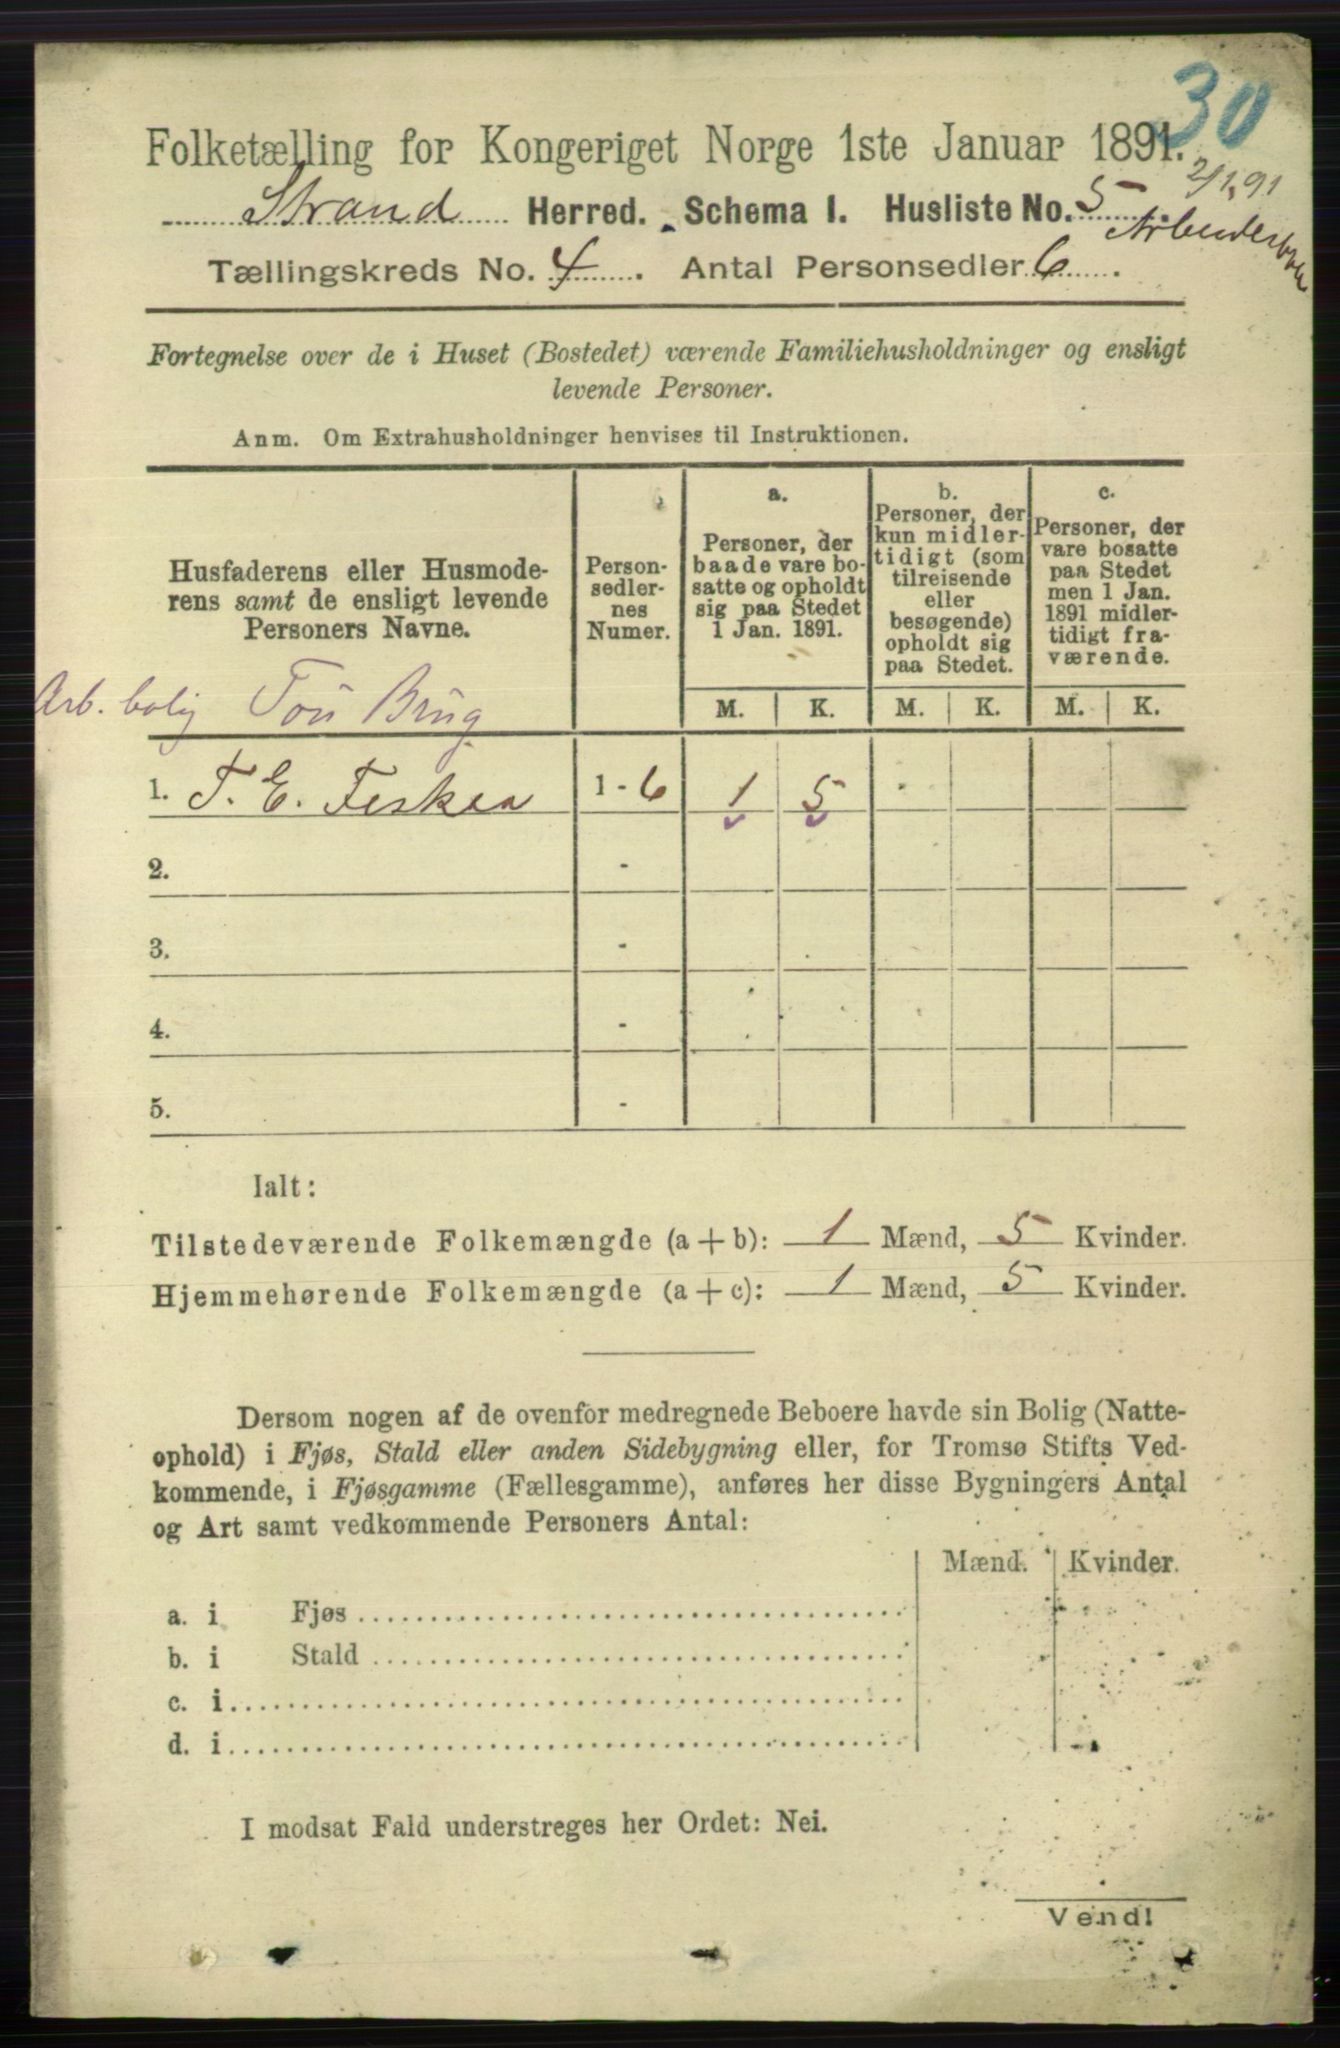 30
Folketælling for Kongeriget Norge 1ste Januar 1891.
2/1 91
Strand Herred. Schema I. Husliste No. 5
Tællingskreds No. 4. Antal Personsedler 6.
Fortegnelse over de i Huset (Bostedet) værende Familiehusholdninger og ensligt
levende Personer.
Anm. Om Extrahusholdninger henvises til Instruktionen.
Husfaderens eller Husmode-
rens samt de ensligt levende
Personers Navne.
Person-
sedler-
nes
Numer.
a.
Personer, der
baade vare bo-
satte og opholdt
sig paa Stedet
1 Jan. 1891.
b.
Personer, der
kun midler-
tidigt (som
tilreisende
eller
besøgende)
opholdt sig
paa Stedet.
c.
Personer, der
vare bosatte
paa Stedet
men 1 Jan.
1891 midler-
tidigt fra-
værende.
M. K. M. K. M. K.
Arb. bolig Tou Brug
1. T. E. Feskaa 1 - 6 1 5
2. -
3. -
4. -
5. -
Ialt:
Tilstedeværende Folkemængde (a + b): 1 Mænd, 5 Kvinder.
Hjemmehørende Folkemængde (a + c): 1 Mænd, 5 Kvinder.
Dersom nogen af de ovenfor medregnede Beboere havde sin Bolig (Natte-
ophold) i Fjøs, Stald eller anden Sidebygning eller, for Tromsø Stifts Ved-
kommende, i Fjøsgamme (Fællesgamme), anføres her disse Bygningers Antal
og Art samt vedkommende Personers Antal:
Mænd. Kvinder.
a. i Fjøs
b. i Stald
c. i
d. i
I modsat Fald understreges her Ordet: Nei.
Vend!